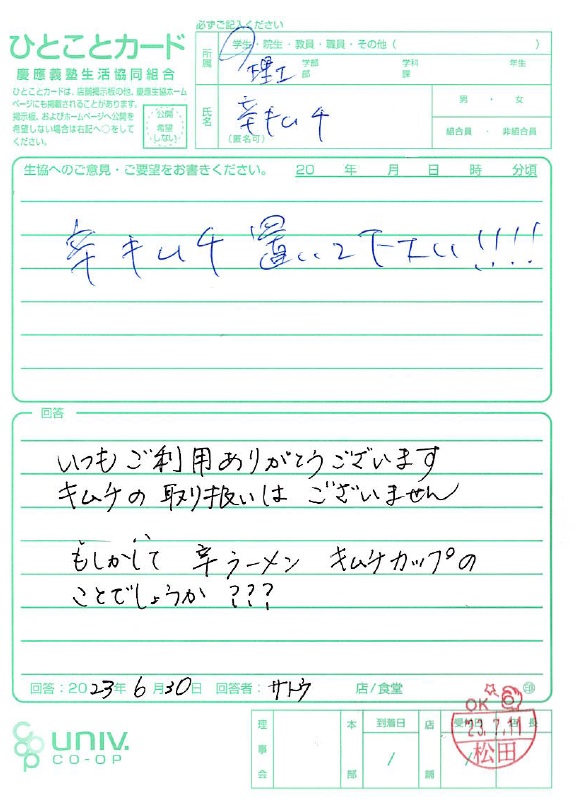 必ずご記入ください
ひとことカード
慶應義塾生活協同組合
ひとことカードは、店舗掲示板の他、慶應生協ホームページにも掲載されることがあります。
掲示板、およびホームページへ公開を
希望しない場合は右記へ○をして
ください。
公開
希望
しない
所属
学生・院生・教員・職員・その他( )
理工
学部 学科 年生
部 課
氏名
(匿名可)
辛キムチ
男・女
組合員・非組合員
生協へのご意見・ご要望をお書きください。 20 年 月 日 時 分頃
辛キムチ 置いて下さい!!!!
回答
いつもご利用ありがとうございます
キムチの取り扱いは ございません
もしかして 辛ラーメン キムチカップの
ことでしょうか ???
回答:2023年6月30日 回答者:サトウ 店/食堂 ㊞
UNIV.
CO-OP
理事会
本部
到着日
/
店舗
/
OK
'23.7.11
松田